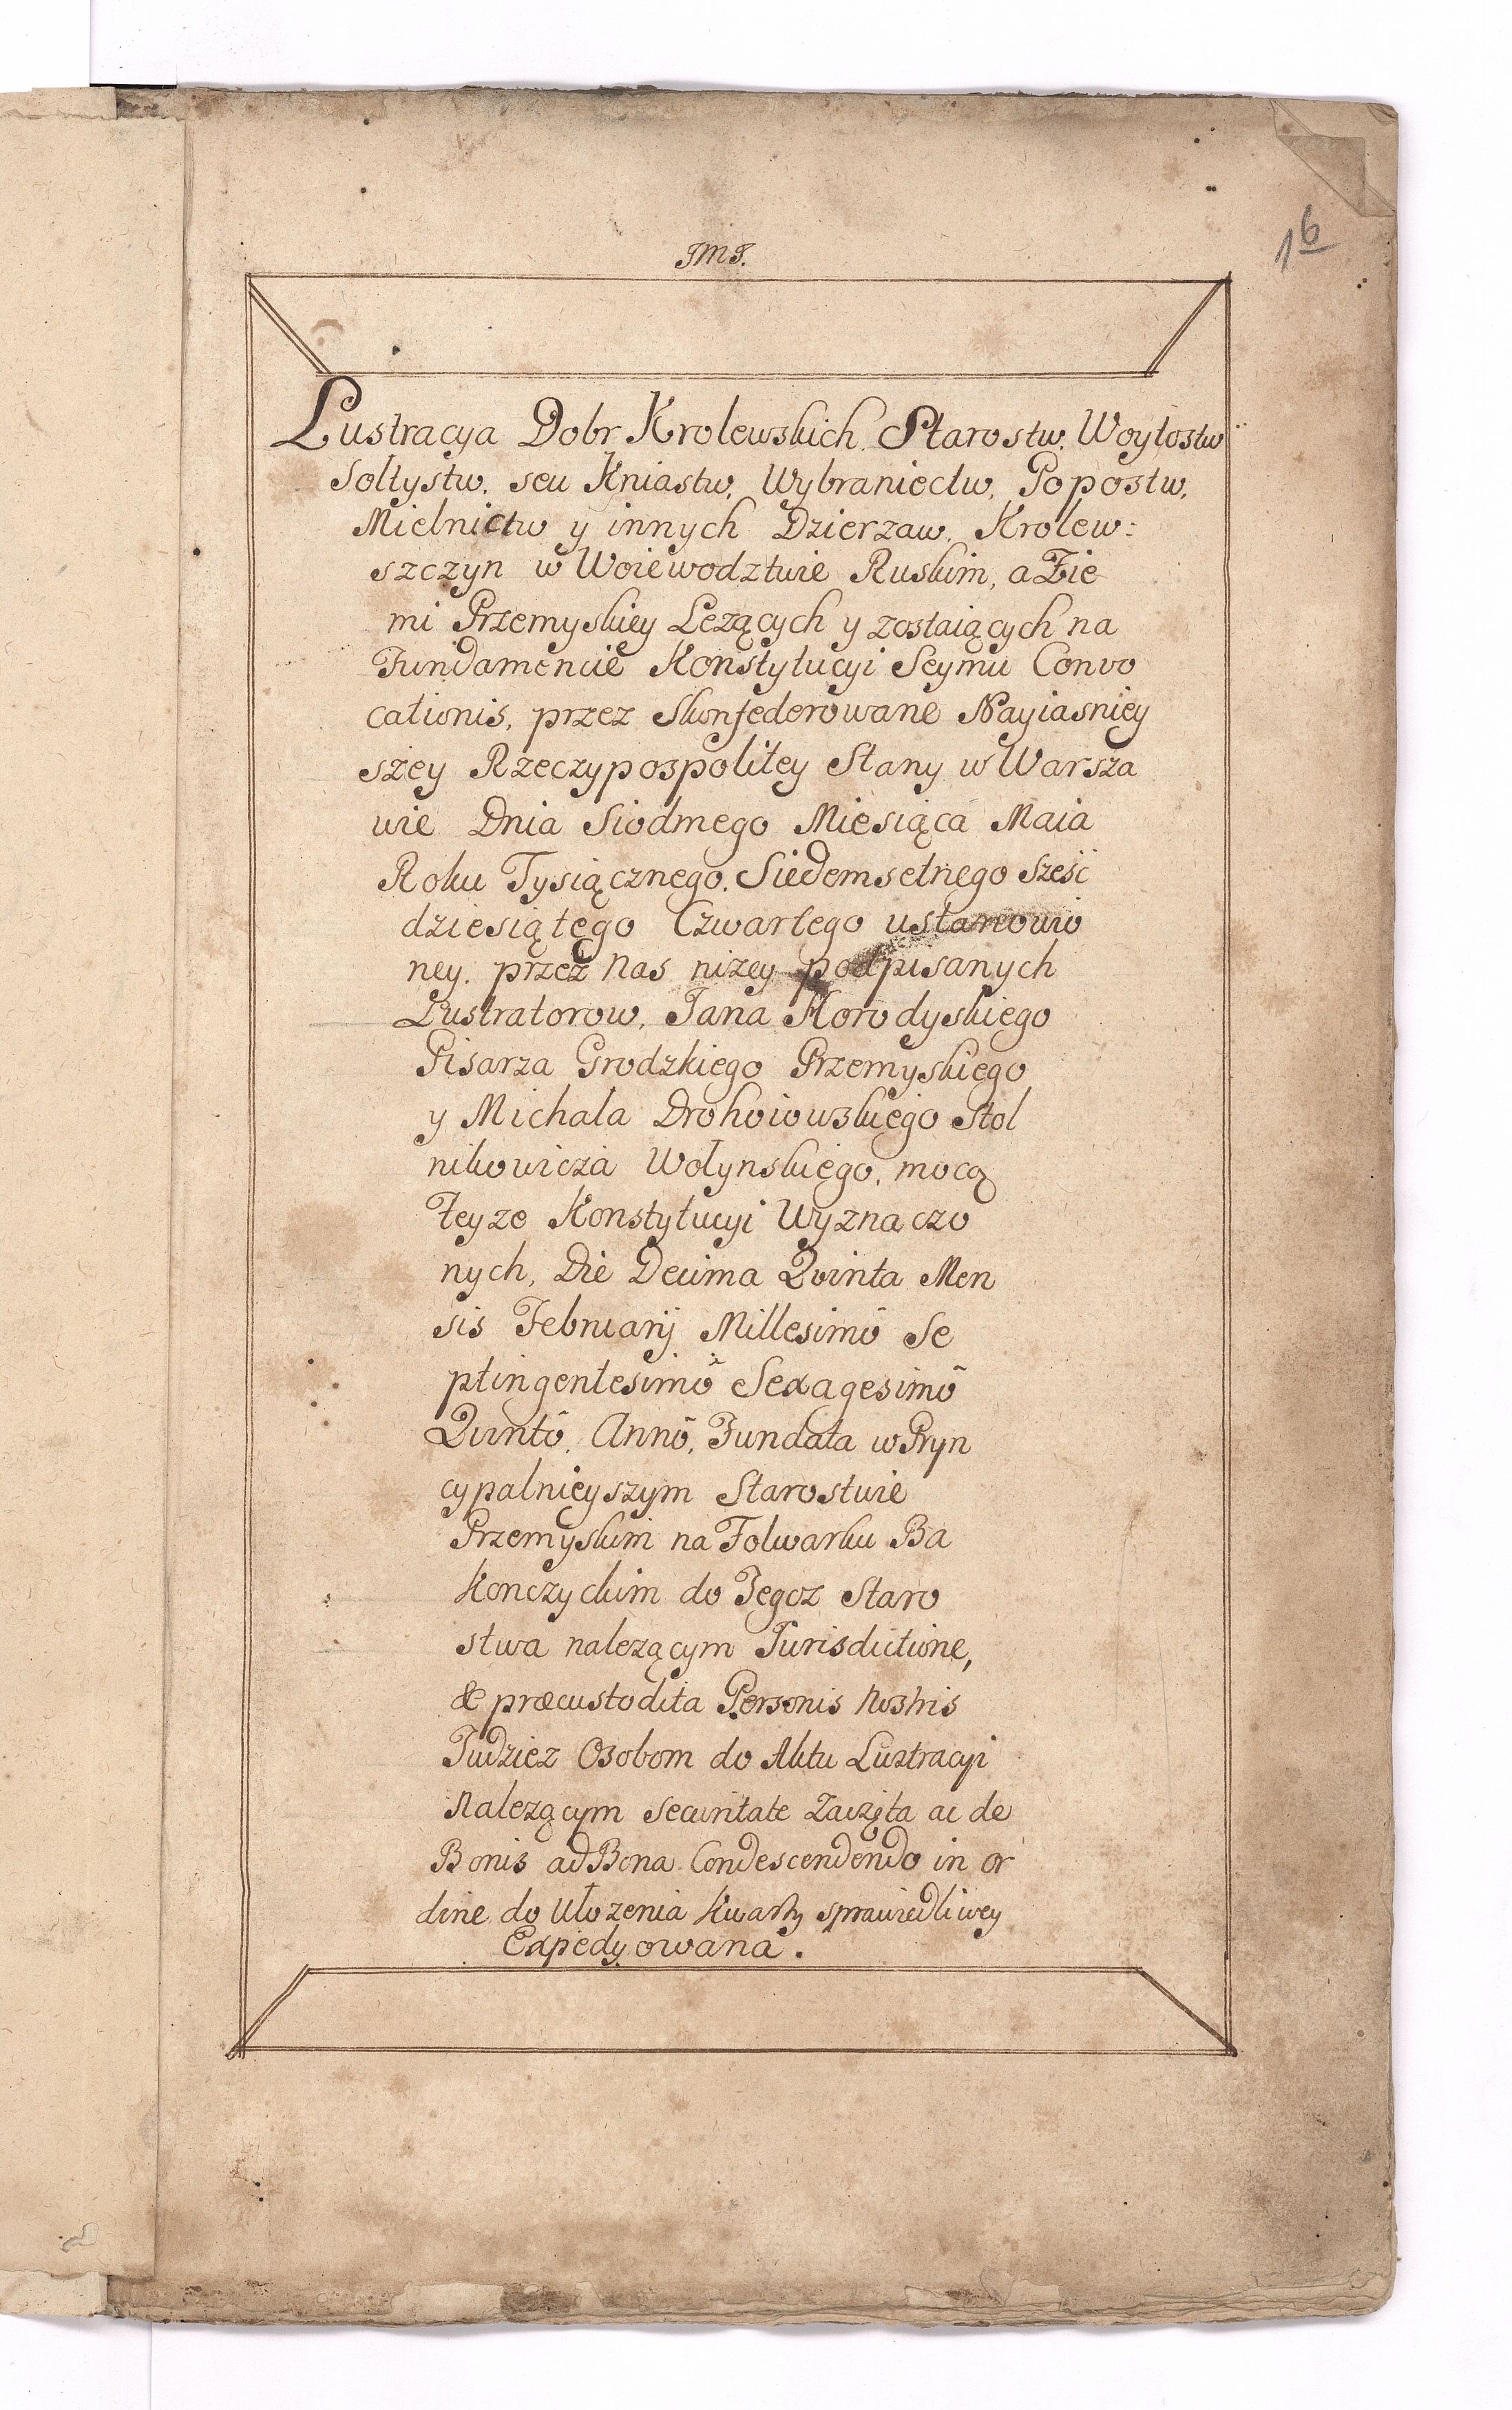 16
JMJ.
Lustracya Dobr Krolewskich. Starostw. Woytostw
Soltystw. seu Kniastw, Wybraniectw, Popostw,
Mielnictw y innych Dzierzaw. Krolew:
szczyn w Woiewodztwie Ruskim, a Zie
mi Przemyskiey Lezących y zostaiących na
Fundamencie Konstytucyi Seymu Convo
cationis, przez Skonfederowane Nayiasniey
szey Rzeczypospolitey Stany w Warsza
wie Dnia Siodmego Miesiąca Maia
Roku Tysiącznego. Siedemsetnego Sześć
dziesiątego Czwartego ustanowio
ney. przez Nas nizey podpisanych
Lustratorow, Jana Horodyskiego
Pisarza Grodzkiego Przemyskiego
y Michala Drohoiowskiego Stol
nikowicza Wołynskiego, mocą
Teyze Konstytucyi Wyznaczo
nych, Die Decima Qvinta Men
sis Februarij Millesimô Se
ptingentesimô Sexagesimô
Qvintô. Annô, Fundata w Pryn
cypalnieyszym Starostwie
Przemyskim na Folwarku Ba
konczyckim do Tegoz Staro
stwa nalezącym Jurisdictione,
& præcustodita Personis Nostris
Tudziez Osobom do Aktu Lustracyi
Nalezącym Securitate Zaczęta ac de
Bonis ad Bona Condescendendo in or
dine do Ułozenia Kwarty sprawiedliwey
Expedyowana.